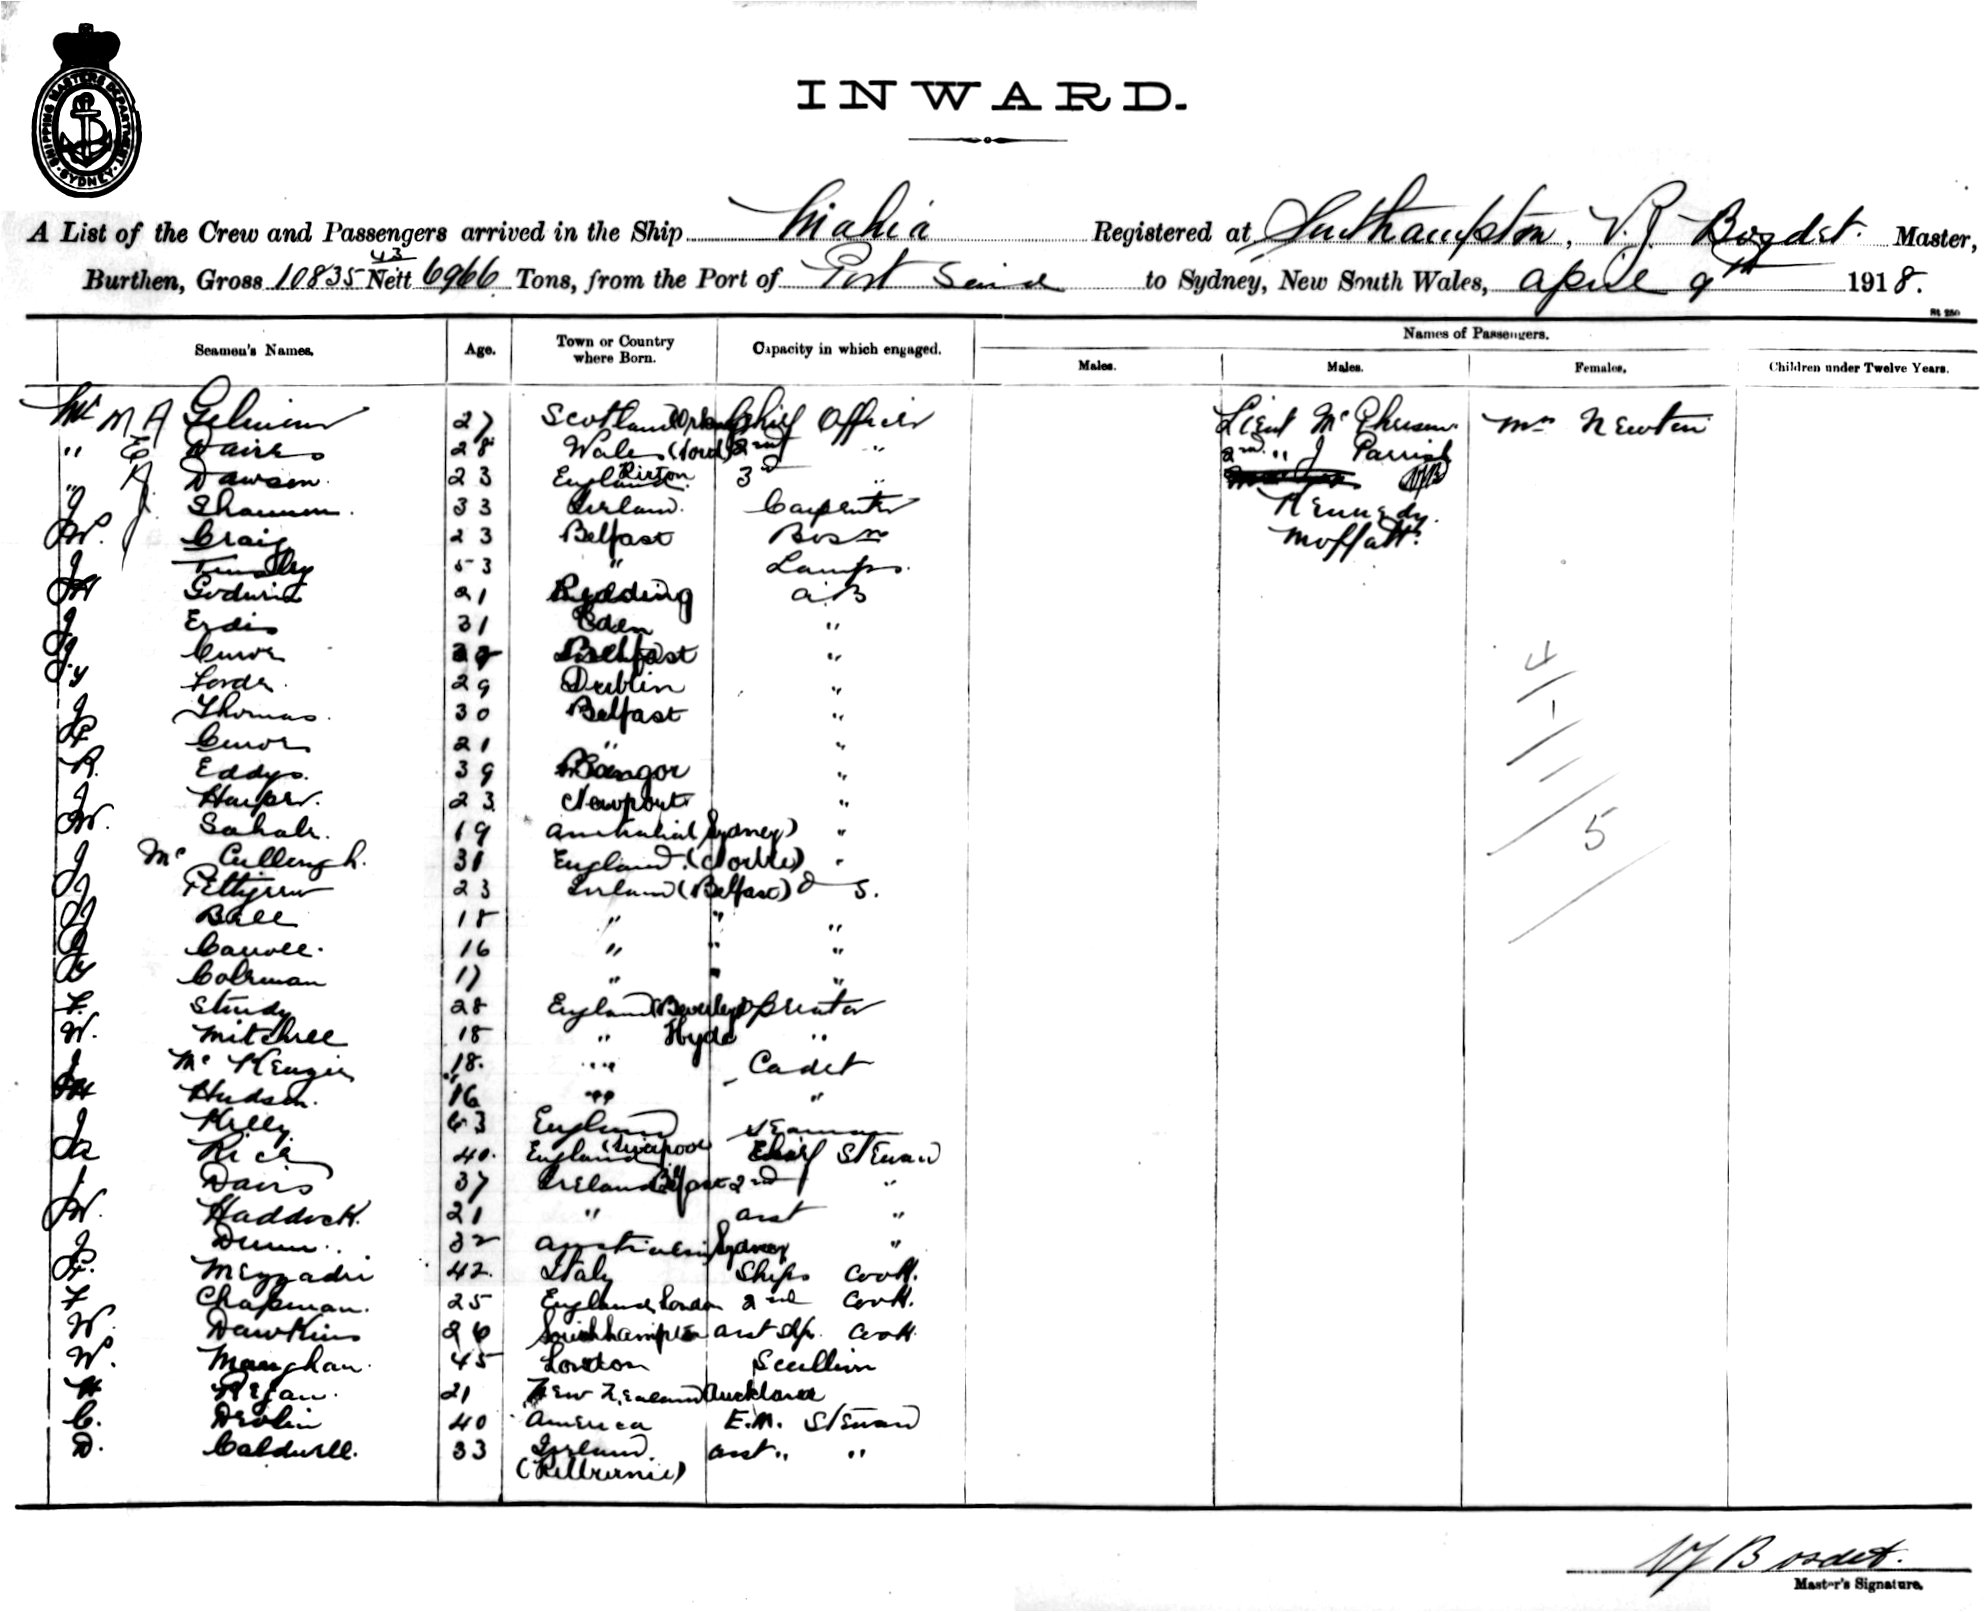 SHIPPING MASTERS DEPARTMENT
SYDNEY
INWARD.
A List of the Crew and Passengers arrived in the Ship Registered at Southampton, V. J. Bosdet. Master,
Burthen, Gross 10835 43 Nett 6966 Tons, from the Port of Port Said to Sydney, New South Wales, April 9th 1918.
Names of Passengers.
Seamen's Names. Age. Town or Country where Born. Capacity in which engaged. Males. Males. Females. Children under Twelve Years.
M A 27 Scotland Chief Officer Lieut Mrs Newton
" E 28 Wales 2nd " 2nd " J Parrish
" Dawson. 23 England Kirton 3rd "
J Shannon. 33 Ireland. Carpenter Kennedy.
W. Craig 23 Belfast Bosn Moffatt.
J 53 " Lamps.
21 Redding A.B
J 31 Eden "
J Belfast "
29 Dublin "
J Thomas. 30 Belfast "
21 " "
R. Eddys. 39 Bangor "
J Harper. 23 Newport "
W. 19 Australia (Sydney) "
J Mc Cullough. 31 England. "
J Pettigrew 23 Ireland (Belfast) O S.
J Ball 18 " " "
J Carroll. 16 " " "
Coleman 17 " " "
F. Study 28 England (Beverley) Operator
W. Mitchell 18 " Hyde "
J Mc Kenzie 18. " " Cadet
H Hudson. 16 " " "
J Kelly 63 England Seaman
Rice 40. England (Liverpool Chief Steward
J Davis 37 Ireland Belfast 2nd "
W. Haddock. 21 " asst "
J Dunn. 32 Australia Sydney "
Mezzadri 42. Italy Ships Cook.
F Chapman. 25 England London 2nd Cook.
W. Dawkins 26 Southampton asst Sp. Cook
W. Maughan. 45 London Scullion
H Regan. 21 New Zealand Auckland
C. Devlin 40 America E.M. Steward
D. Caldwell. 33 Ireland. asst " "
4
1
5
V J Bosdet.
Master's Signature.